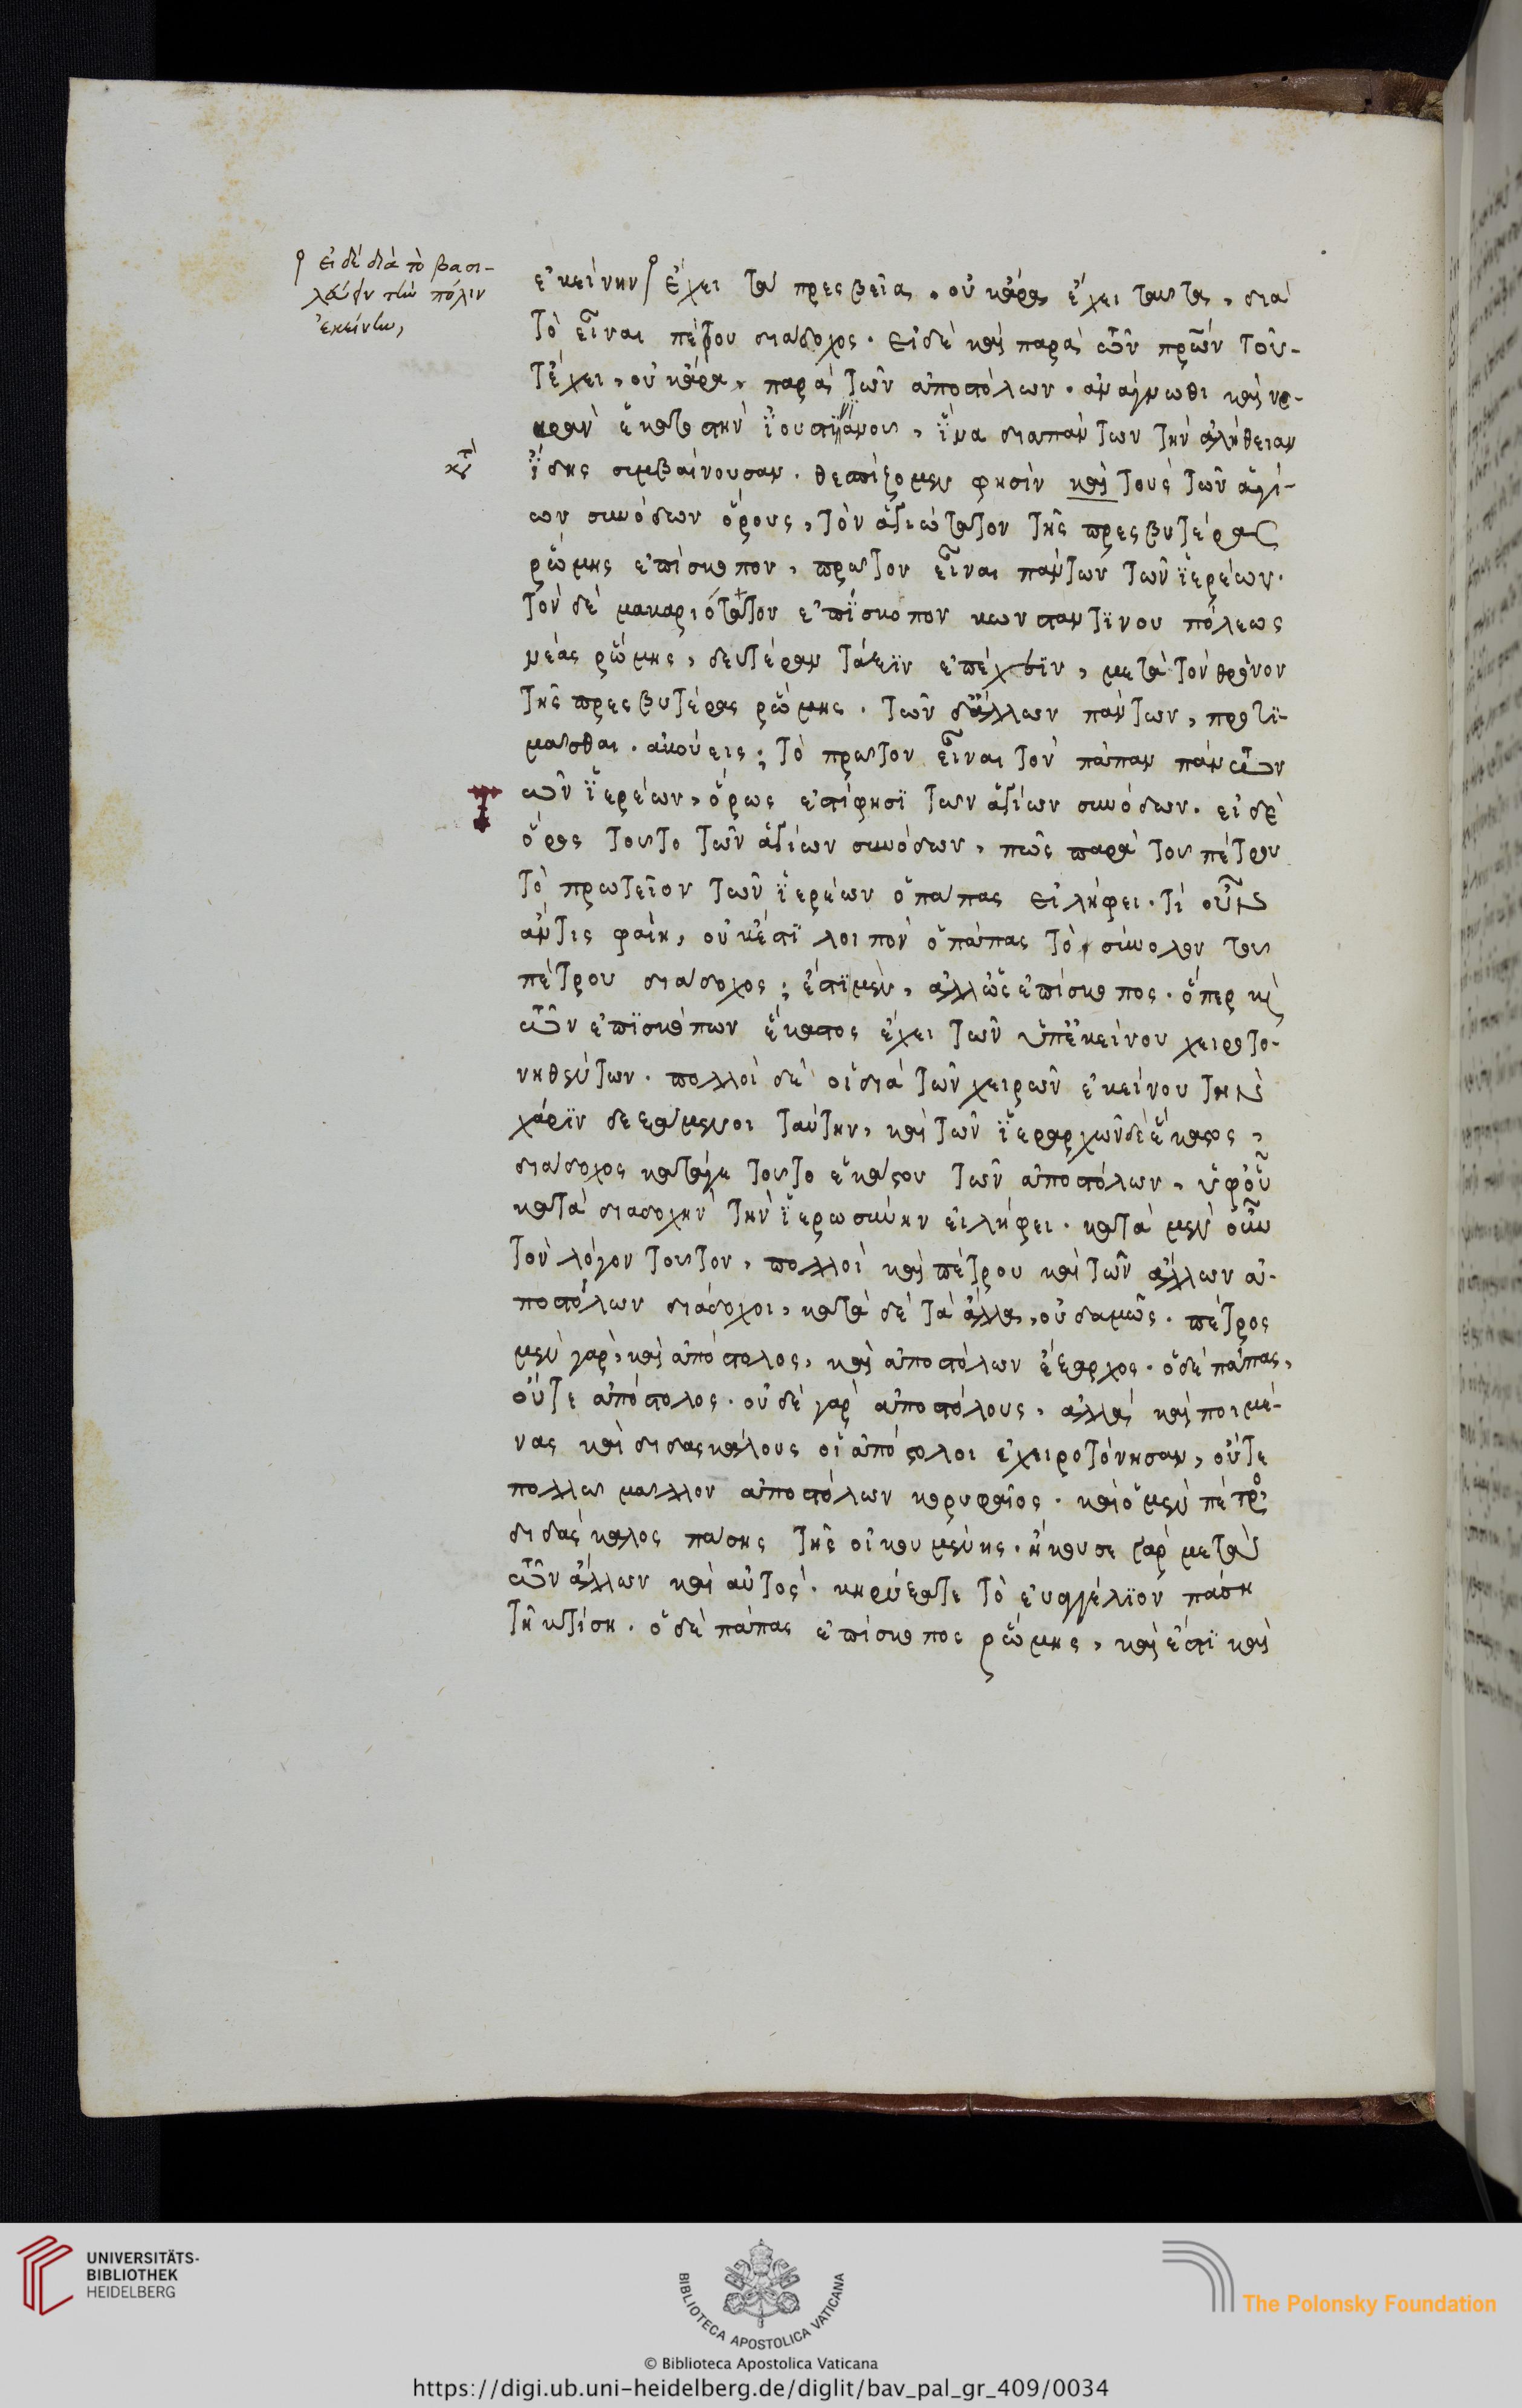 εἰ δὲ διὰ τὸ βασι-
λεύειν τὴν πόλιν
ἐκείνην,
κατὰ
ἐκείνην ἔχει τὰ πρεσβεῖα, οὐκ ἄρα ἔχει ταῦτα, διὰ
τὸ εἶναι πέτρου διάδοχος. εἰ δὲ καὶ παρὰ τῶν πρῶν τοῦ-
τ' ἔχει, οὐκ ἄρα παρὰ τῶν ἀποστόλων. ἀνάγνωθι καὶ νε-
αρὰν ἑκατοστὴν ἰουστινιάνου, ἵνα διαπάντων τὴν ἀλήθειαν
ἴδης συμβαίνουσαν. θεσπίζομεν φησὶν καὶ τοὺς τῶν ἁγί-
ων συνόδων ὅρους, τὸν ἁγιώτατον τῆς πρεσβυτέρας
ῥώμης ἐπίσκοπον, πρῶτον εἶναι πάντων τῶν ἱερέων.
τὸν δὲ μακαριότατον ἐπίσκοπον κωνσταντίνου πόλεως
νέας ῥώμης, δευτέραν τάξιν ἐπέχειν, μετὰ τὸν θρόνον
τῆς πρεσβυτέρας ῥώμης. τῶν δ' ἄλλων πάντων, προτι-
μᾶσθαι. ἀκούεις; τὸ πρῶτον εἶναι τὸν πάπαν πάντων
τῶν ἱερέων, ὅρος ἐστί φησι τῶν ἁγίων συνόδων. εἰ δὲ
ὅρος τοῦτο τῶν ἁγίων συνόδων, πῶς παρὰ τοῦ πέτρου
τὸ πρωτεῖον τῶν ἱερέων ὁ πάπας εἰλήφει. τί οὖν
ἄν τις φαίη, οὐκ ἔστι λοιπὸν ὁ πάπας τὸ σύνολον τοῦ
πέτρου διάδοχος; ἔστι μὲν, ἀλλ' ὡς ἐπίσκοπος. ὅπερ καὶ
τῶν ἐπισκόπων ἕκαστος ἔχει τῶν ὑπ' ἐκείνου χειροτο-
νηθέντων. πολλοὶ δὲ οἱ διὰ τῶν χειρῶν ἐκείνου τὴν
χάριν δεξάμενοι ταύτην, καὶ τῶν ἱεραρχῶν δὲ ἕκαστος,
διάδοχος κατάγε τοῦτο ἑκάστου τῶν ἀποστόλων, ὑφ' οὗ
κατὰ διαδοχὴν τὴν ἱερωσύνην εἰλήφει. κατὰ μὲν οὖν
τὸν λόγον τοῦτον, πολλοὶ καὶ πέτρου καὶ τῶν ἄλλων ἀ-
ποστόλων διάδοχοι, κατὰ δὲ τὰ ἄλλα, οὐδαμῶς. πέτρος
μὲν γὰρ, καὶ ἀπόστολος, καὶ ἀποστόλων ἔξαρχος. ὁ δὲ πάπας,
οὔτε ἀπόστολος. οὐδὲ γὰρ ἀποστόλους, ἀλλὰ καὶ ποιμέ-
νας καὶ διδασκάλους οἱ ἀπόστολοι ἐχειροτόνησαν, οὔτε
πολλῶ μᾶλλον ἀποστόλων κορυφαῖος. καὶ ὁ μὲν πέτρος
διδάσκαλος πάσης τῆς οἰκουμένης. ἤκουσε γὰρ μετὰ
τῶν ἄλλων καὶ αὐτὸς. κηρύξατε τὸ εὐαγγέλιον πάση
τῆ κτίση. ὁ δὲ πάπας ἐπίσκοπος ῥώμης, καὶ ἔστι καὶ
UNIVERSITÄTS-
BIBLIOTHEK
HEIDELBERG
BIBLIOTECA APOSTOLICA VATICANA
The Polonsky Foundation
© Biblioteca Apostolica Vaticana
https://digi.ub.uni-heidelberg.de/diglit/bav_pal_gr_409/0034